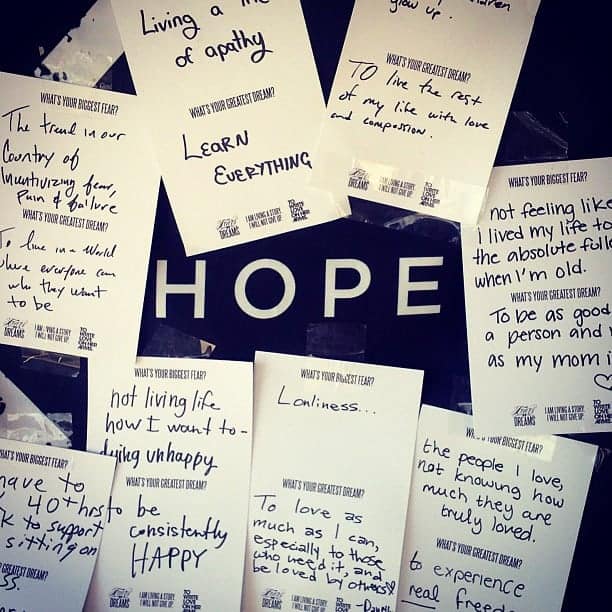 Living a life
of apathy
WHAT'S YOUR GREATEST DREAM?
LEARN
EVERYTHING
FEARS vs. DREAMS
I AM LIVING A STORY.
I WILL NOT GIVE UP.
TO WRITE LOVE ON HER ARMS.
grow up.
WHAT'S YOUR GREATEST DREAM?
TO live the rest
of my life with love
and compassion.
DREAMS
I AM LIVING A STORY.
I WILL NOT GIVE UP.
TO WRITE LOVE ON HER ARMS.
WHAT'S YOUR BIGGEST FEAR?
The trend in our
Country of
Incentivizing fear,
Pain & failure
WHAT'S YOUR GREATEST DREAM?
To live in a world
where everyone can
who they want
to be
DREAMS
I AM LIVING A STORY.
I WILL NOT GIVE UP.
TO WRITE LOVE ON HER ARMS.
HOPE
WHAT'S YOUR BIGGEST FEAR?
not feeling like
I lived my life to
the absolute
when I'm old.
WHAT'S YOUR GREATEST DREAM?
To be as good
a person and
as my mom
DREAMS
I AM LIVING A STORY.
I WILL NOT GIVE UP.
TO WRITE LOVE ON HER ARMS.
WHAT'S YOUR BIGGEST FEAR?
have to
40+hrs
to support
sitting on
GREATEST DREAM?
WHAT'S YOUR BIGGEST FEAR?
not living life
how I want to -
dying unhappy
WHAT'S YOUR GREATEST DREAM?
to be
consistently
HAPPY
DREAMS
I AM LIVING A STORY.
I WILL NOT GIVE UP.
TO WRITE LOVE ON HER ARMS.
WHAT'S YOUR BIGGEST FEAR?
Lonliness...
WHAT'S YOUR GREATEST DREAM?
To love as
much as I can,
especially to those
who need it, and
be loved by others
DREAMS
I AM LIVING A STORY.
I WILL NOT GIVE UP.
TO WRITE LOVE
WHAT'S YOUR BIGGEST FEAR?
the people I love,
not knowing how
much they are
truly loved.
WHAT'S YOUR GREATEST DREAM?
to experience
real